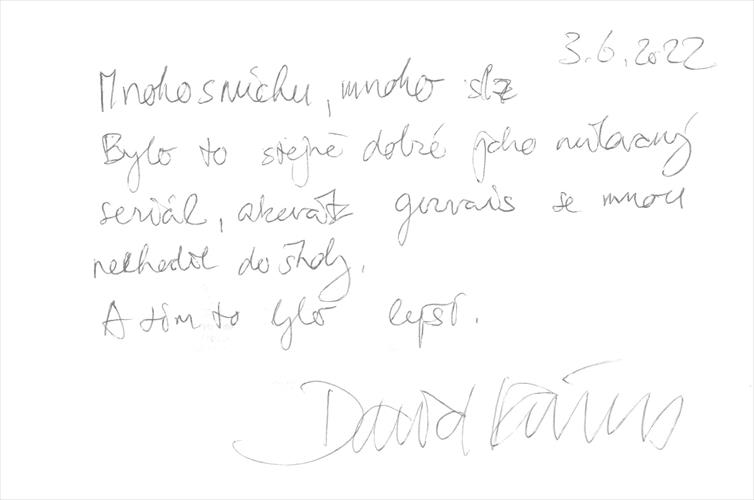 3.6.2022
Mnoho smíchu, mnoho slz
Bylo to stejně dobré jako milovaný
seriál, akorát gervais se mnou
nechodil do školy.
A tím to bylo lepší.
David